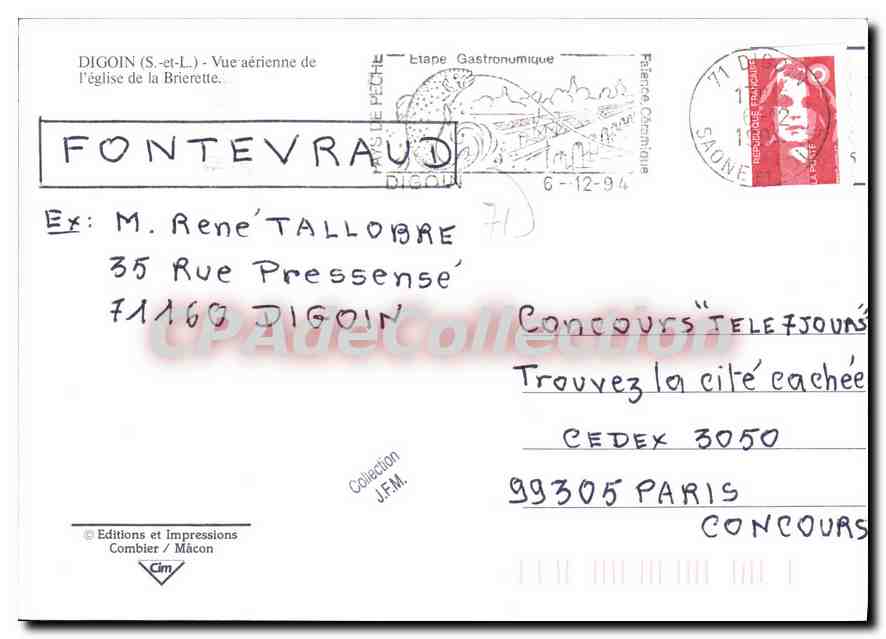 DIGOIN (S.-et-L.) - Vue aérienne de
l'église de la Brierette.
PAYS DE PECHE
Etape Gastronomique
Faïence, Céramique
DIGOIN
6--12-94
71 DIG
SAONE ET
REPUBLIQUE FRANÇAISE
LA POSTE
FONTEVRAUD
71
Ex: M. René TALLOBRE
35 Rue Pressensé
71160 DIGOIN
CPAdeCollection
Concours "TELE 7 JOURS"
Trouvez la cité cachée
CEDEX 3050
99305 PARIS
CONCOURS
Collection
J.F.M.
© Editions et Impressions
Combier / Mâcon
Cim